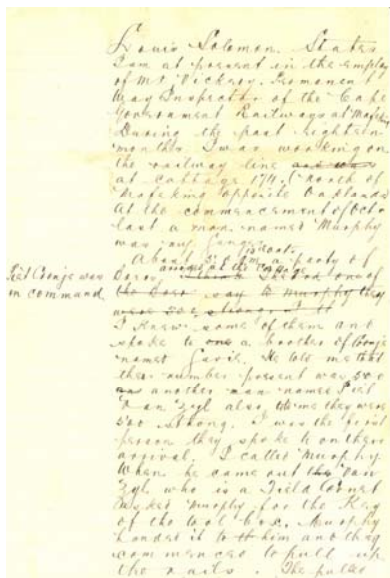 Louis Solomon. States
I am at present in the employ
of Mr Vickroy. Permanent
Way Inspector of the Cape
Government Railways at Mafeking
During the past eighteen
months I was working on
the railway line and was
at Cottage 174. (North of
Mafeking opposite Oaklands
At the commencement of Octo
last a man named Murphy
was my Ganger
About 5. p.m. a party of
Boers arrived at the Cottage
Piet Cronje was
in command.
say to Murphy they
were 500 strong
I knew some of them and
spoke to one a brother of Cronje
named He told me that
their number present was 500
and another man named Piet
Van Zyl also told me they were
500 strong. I was the first
person they spoke to on their
arrival. I called Murphy
When he came out the Van
Zyl who is a Field Cornet
asked Murphy for the Key
of the tool box. Murphy
handed it to him and they
commenced to pull up
the rails. The pulled